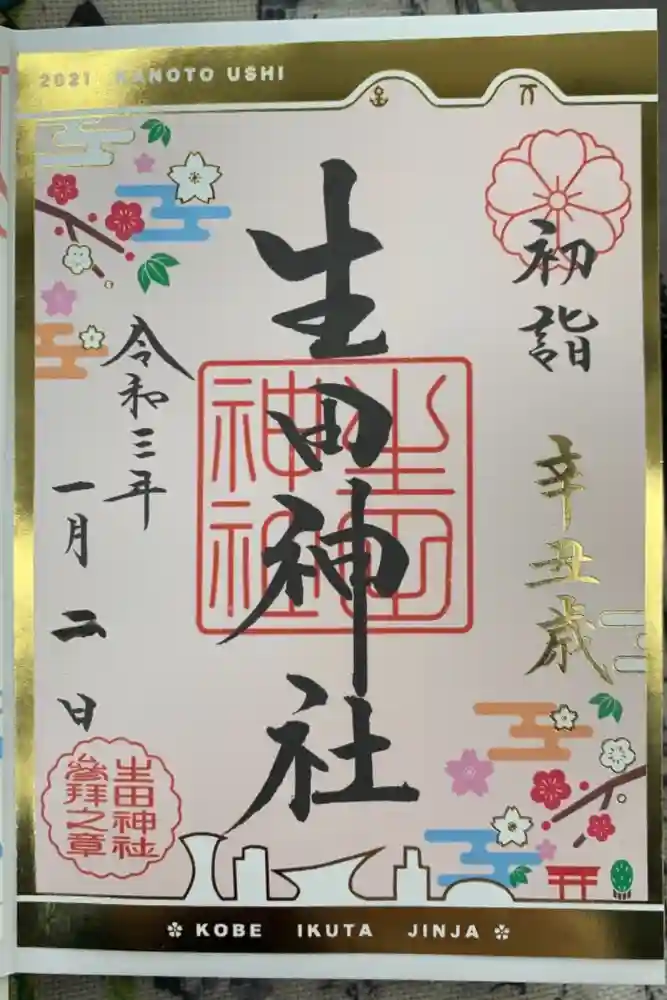 2021 KANOTO USHI
初詣
辛丑歳
生田神社
生田神社
令和三年
一月二日
生田神社
參拜之章
KOBE IKUTA JINJA